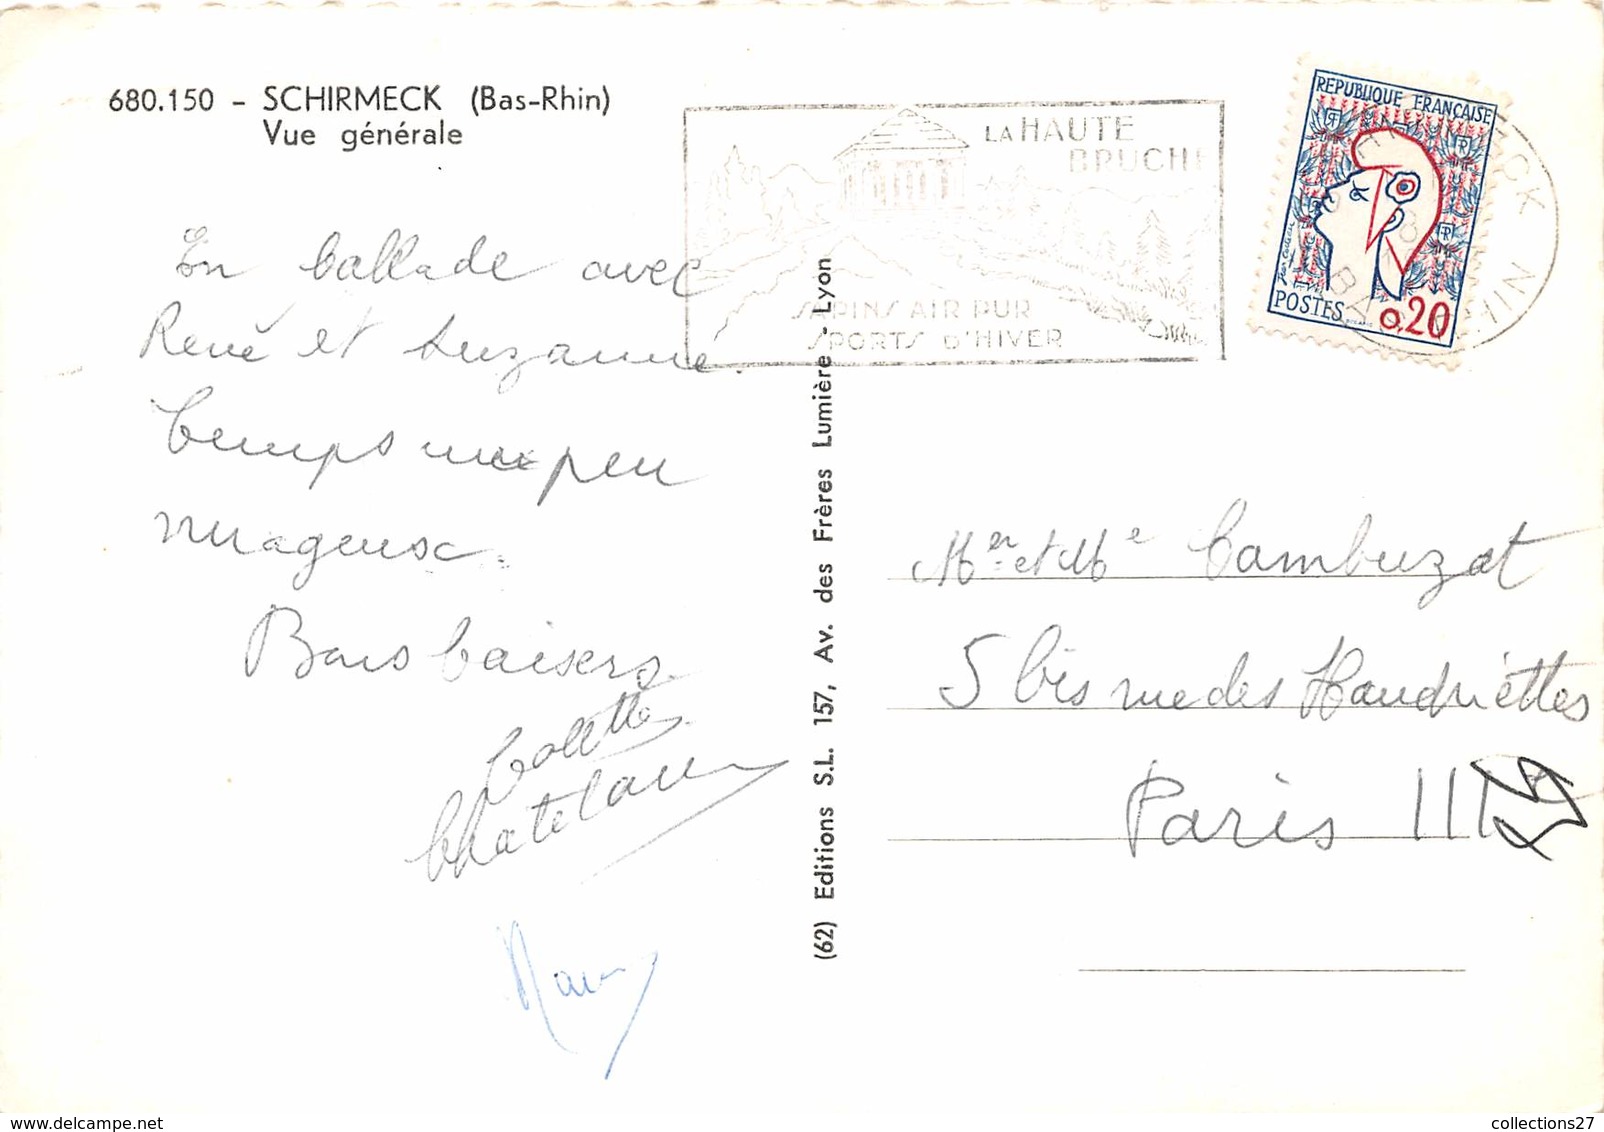 680.150 - SCHIRMECK (Bas-Rhin)
Vue générale
En ballade avec
René et Suzanne.
Temps un peu
nuageux.
Bons baisers.
Colette
Chatelain
(62) Editions S.L. 157, Av. des Frères Lumière - Lyon
LA HAUTE
BRUCHE
SAPINS AIR PUR
SPORTS D'HIVER
REPUBLIQUE FRANÇAISE
POSTES 0,20
Mer et Me Cambuzat
5 bis rue des Haudriettes
Paris III
collections27